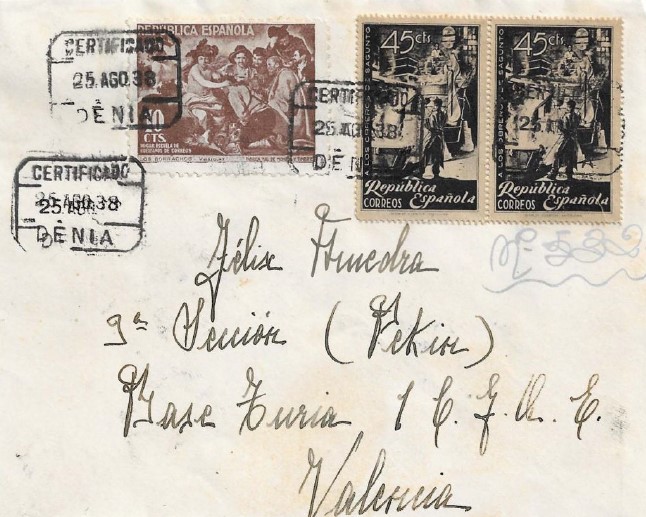 CERTIFICADO
25.AGO.38
DENIA
REPÚBLICA ESPAÑOLA
10
CTS.
HOGAR ESCUELA DE
HUERFANOS DE CORREOS
LOS BORRACHOS
CERTIFICADO
25.AGO.38
DENIA
45 cts.
A LOS OBREROS DE SAGUNTO
República
Española
CORREOS
45 cts.
A LOS OBREROS DE SAGUNTO
República
Española
CORREOS
CERTIFICADO
25.AGO.38
DENIA
Nº 532
Félix
9ª Sección (Pekin)
Base Turia 1 C.J.A.E.
Valencia